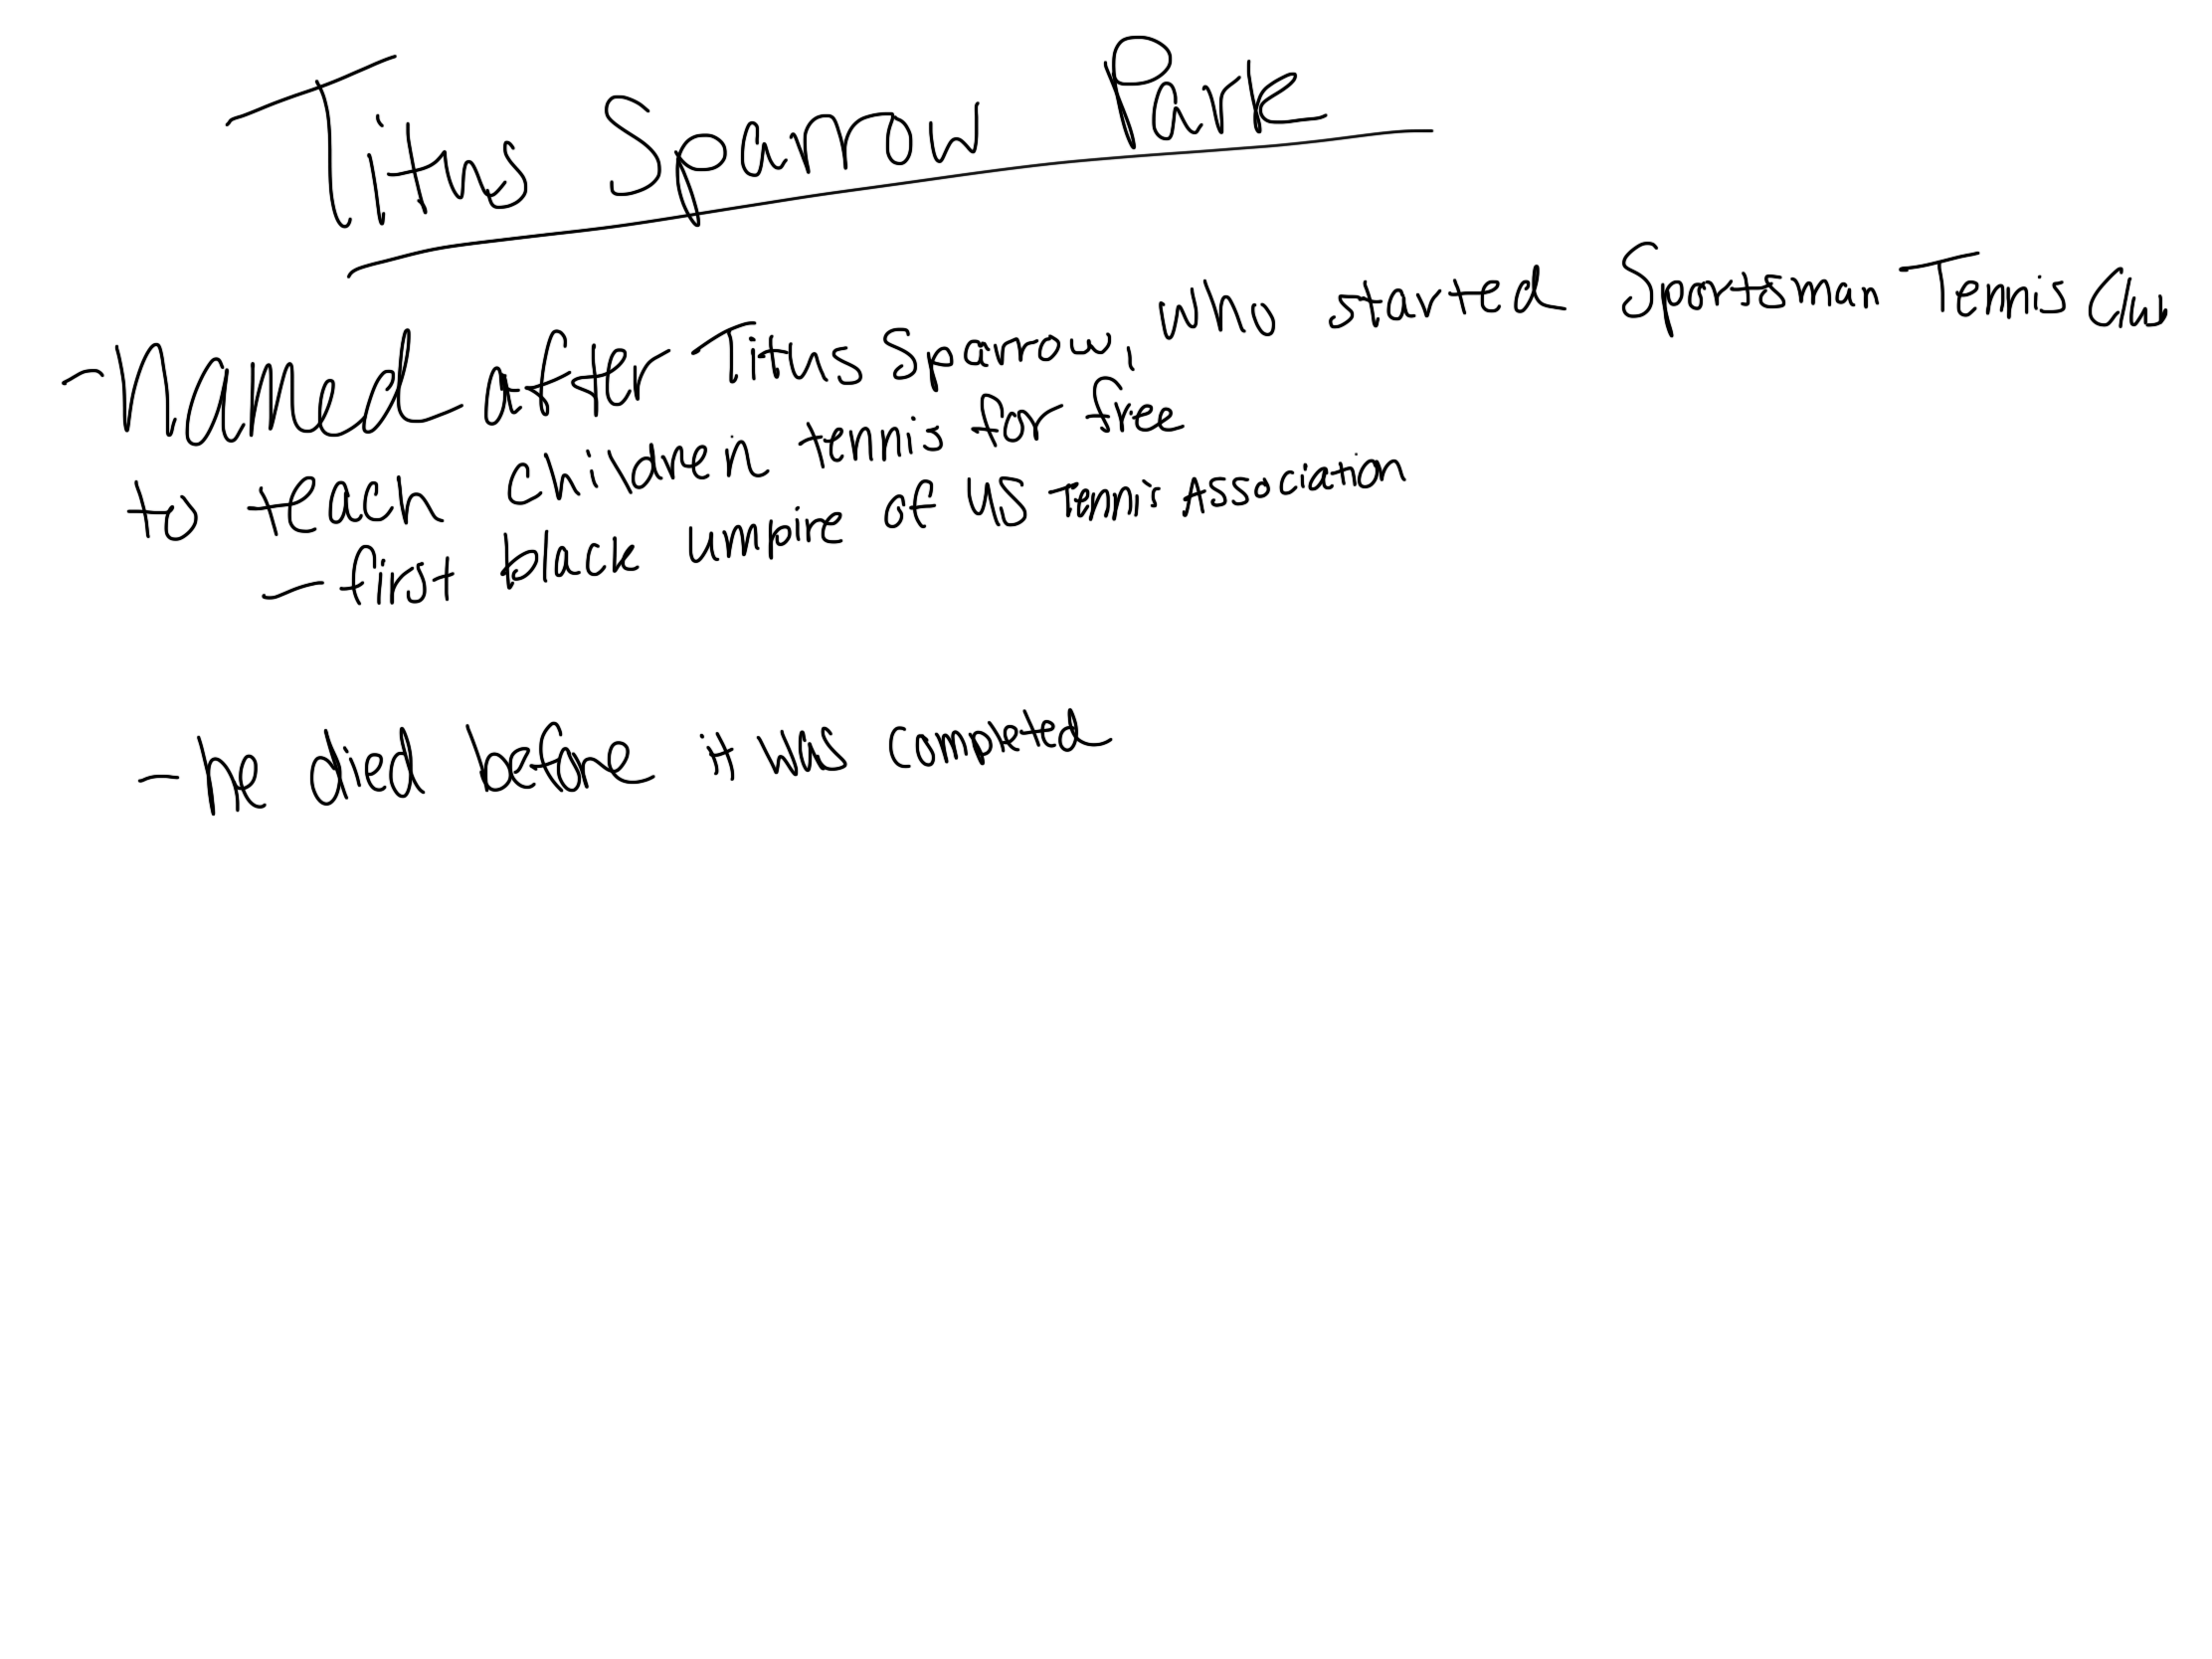 Titus Sparrow Park
- Named after Titus Sparrow, who started Sportsman Tennis Club
to teach children tennis for free
- first black umpire of US Tennis Association
- he died before it was completed